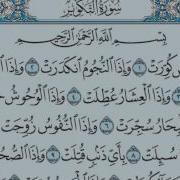 سُورَةُ التَّكْوِيرِ
بِسْمِ اللَّهِ الرَّحْمَٰنِ الرَّحِيمِ
كُوِّرَتْ ١ وَإِذَا النُّجُومُ انكَدَرَتْ ٢ وَإِذَا
وَإِذَا الْعِشَارُ عُطِّلَتْ ٤ وَإِذَا الْوُحُوشُ
سُجِّرَتْ ٦ وَإِذَا النُّفُوسُ زُوِّجَتْ
سُئِلَتْ ٨ بِأَيِّ ذَنبٍ قُتِلَتْ ٩ وَإِذَا